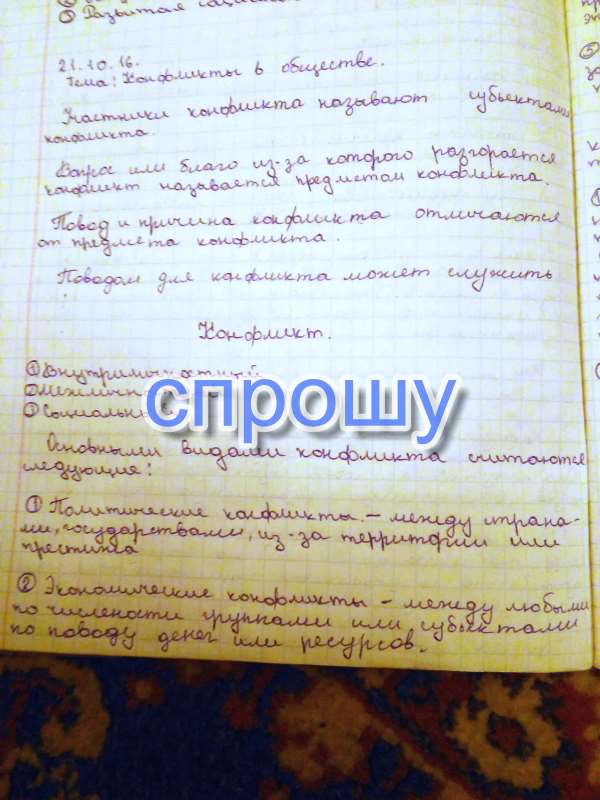 ② Развитая
21.10.16.
Тема: Конфликты в обществе.
Участники конфликта называют субъектами
конфликта.
Вопрос или благо из-за которого разгорается
конфликт называется предметом конфликта.
Повод и причина конфликта отличаются
от предмета конфликта.
Поводом для конфликта может служить
:
Конфликт.
① Внутриличностный
спрошу
Основными видами конфликта считаются
следующие:
① Политические конфликты. – между страна-
ми, государствами, из-за территории или
престижа
② Экономические конфликты – между любыми
по числености группами или субъектами
по поводу денег или ресурсов.